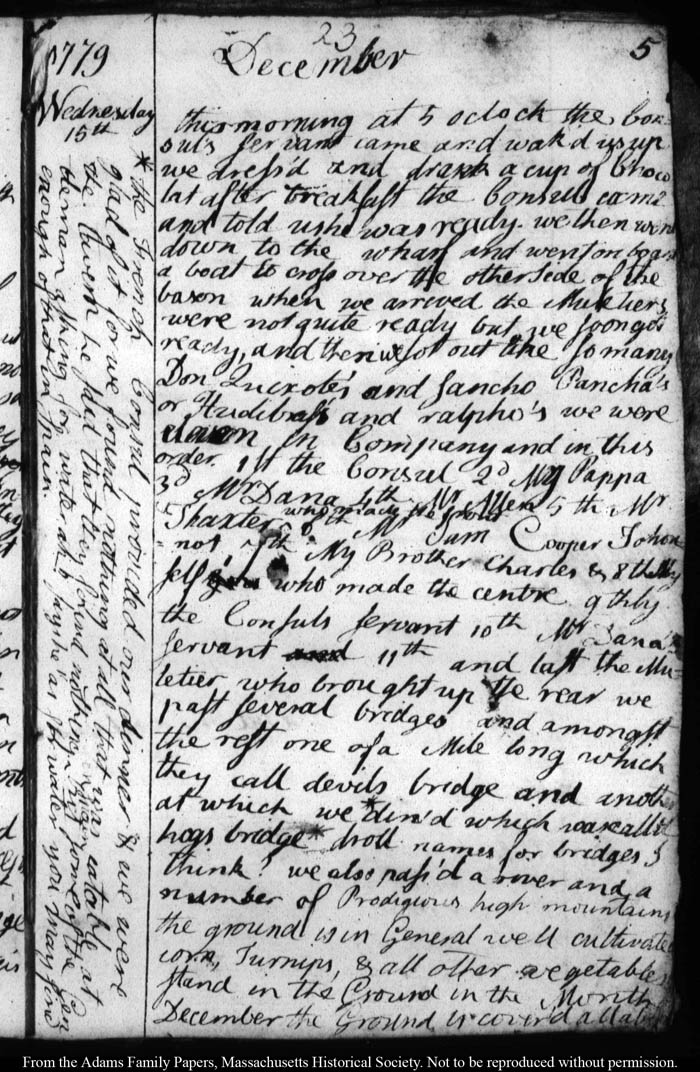 23
5
1779
December
Wednesday
15th
this morning at 5 oclock the Con
sul's servant came and wak'd us up
we dress'd and drank a cup of Choco
lat after breakfast the Consul came
and told us he was ready. we then went
down to the wharf and went on board
a boat to cross over the other side of the
bason when we arrived the Muletiers
were not quite ready but we soon got
ready, and then we sot out like so many
Don Quixote's and Sancho Pancha's
or Hudibras's and ralpho's we were
eleven in Company and in this
order. 1st the Consul 2d My Pappa
3d Mr Dana 4th Mr Allen 5th Mr
Thaxter 6th Mr Sam Cooper Johon
not, 7th My Brother Charles & 8thly My
self who made the centre 9thly
the Consuls servant 10th Mr Dana's
servant 11th and last the Mu=
letier who brought up the rear we
past several bridges and amongst
the rest one of a Mile long which
they call devils bridge and another
at which we *din'd which was call'd
hogs bridge* droll names for bridges I
think! we also pass'd a river and a
number of Prodigious high mountains
the ground is in General well cultivated
corn, Turnips, & all other vegetables
stand in the Ground in the Month
December the Ground is cover'd all
* the French Consul provided our dinner & we were
glad of it for we found nothing at all that was eatable at
the tavern he said that they found nothing
the man asking for write ask
enough of that in Spain.
From the Adams Family Papers, Massachusetts Historical Society. Not to be reproduced without permission.